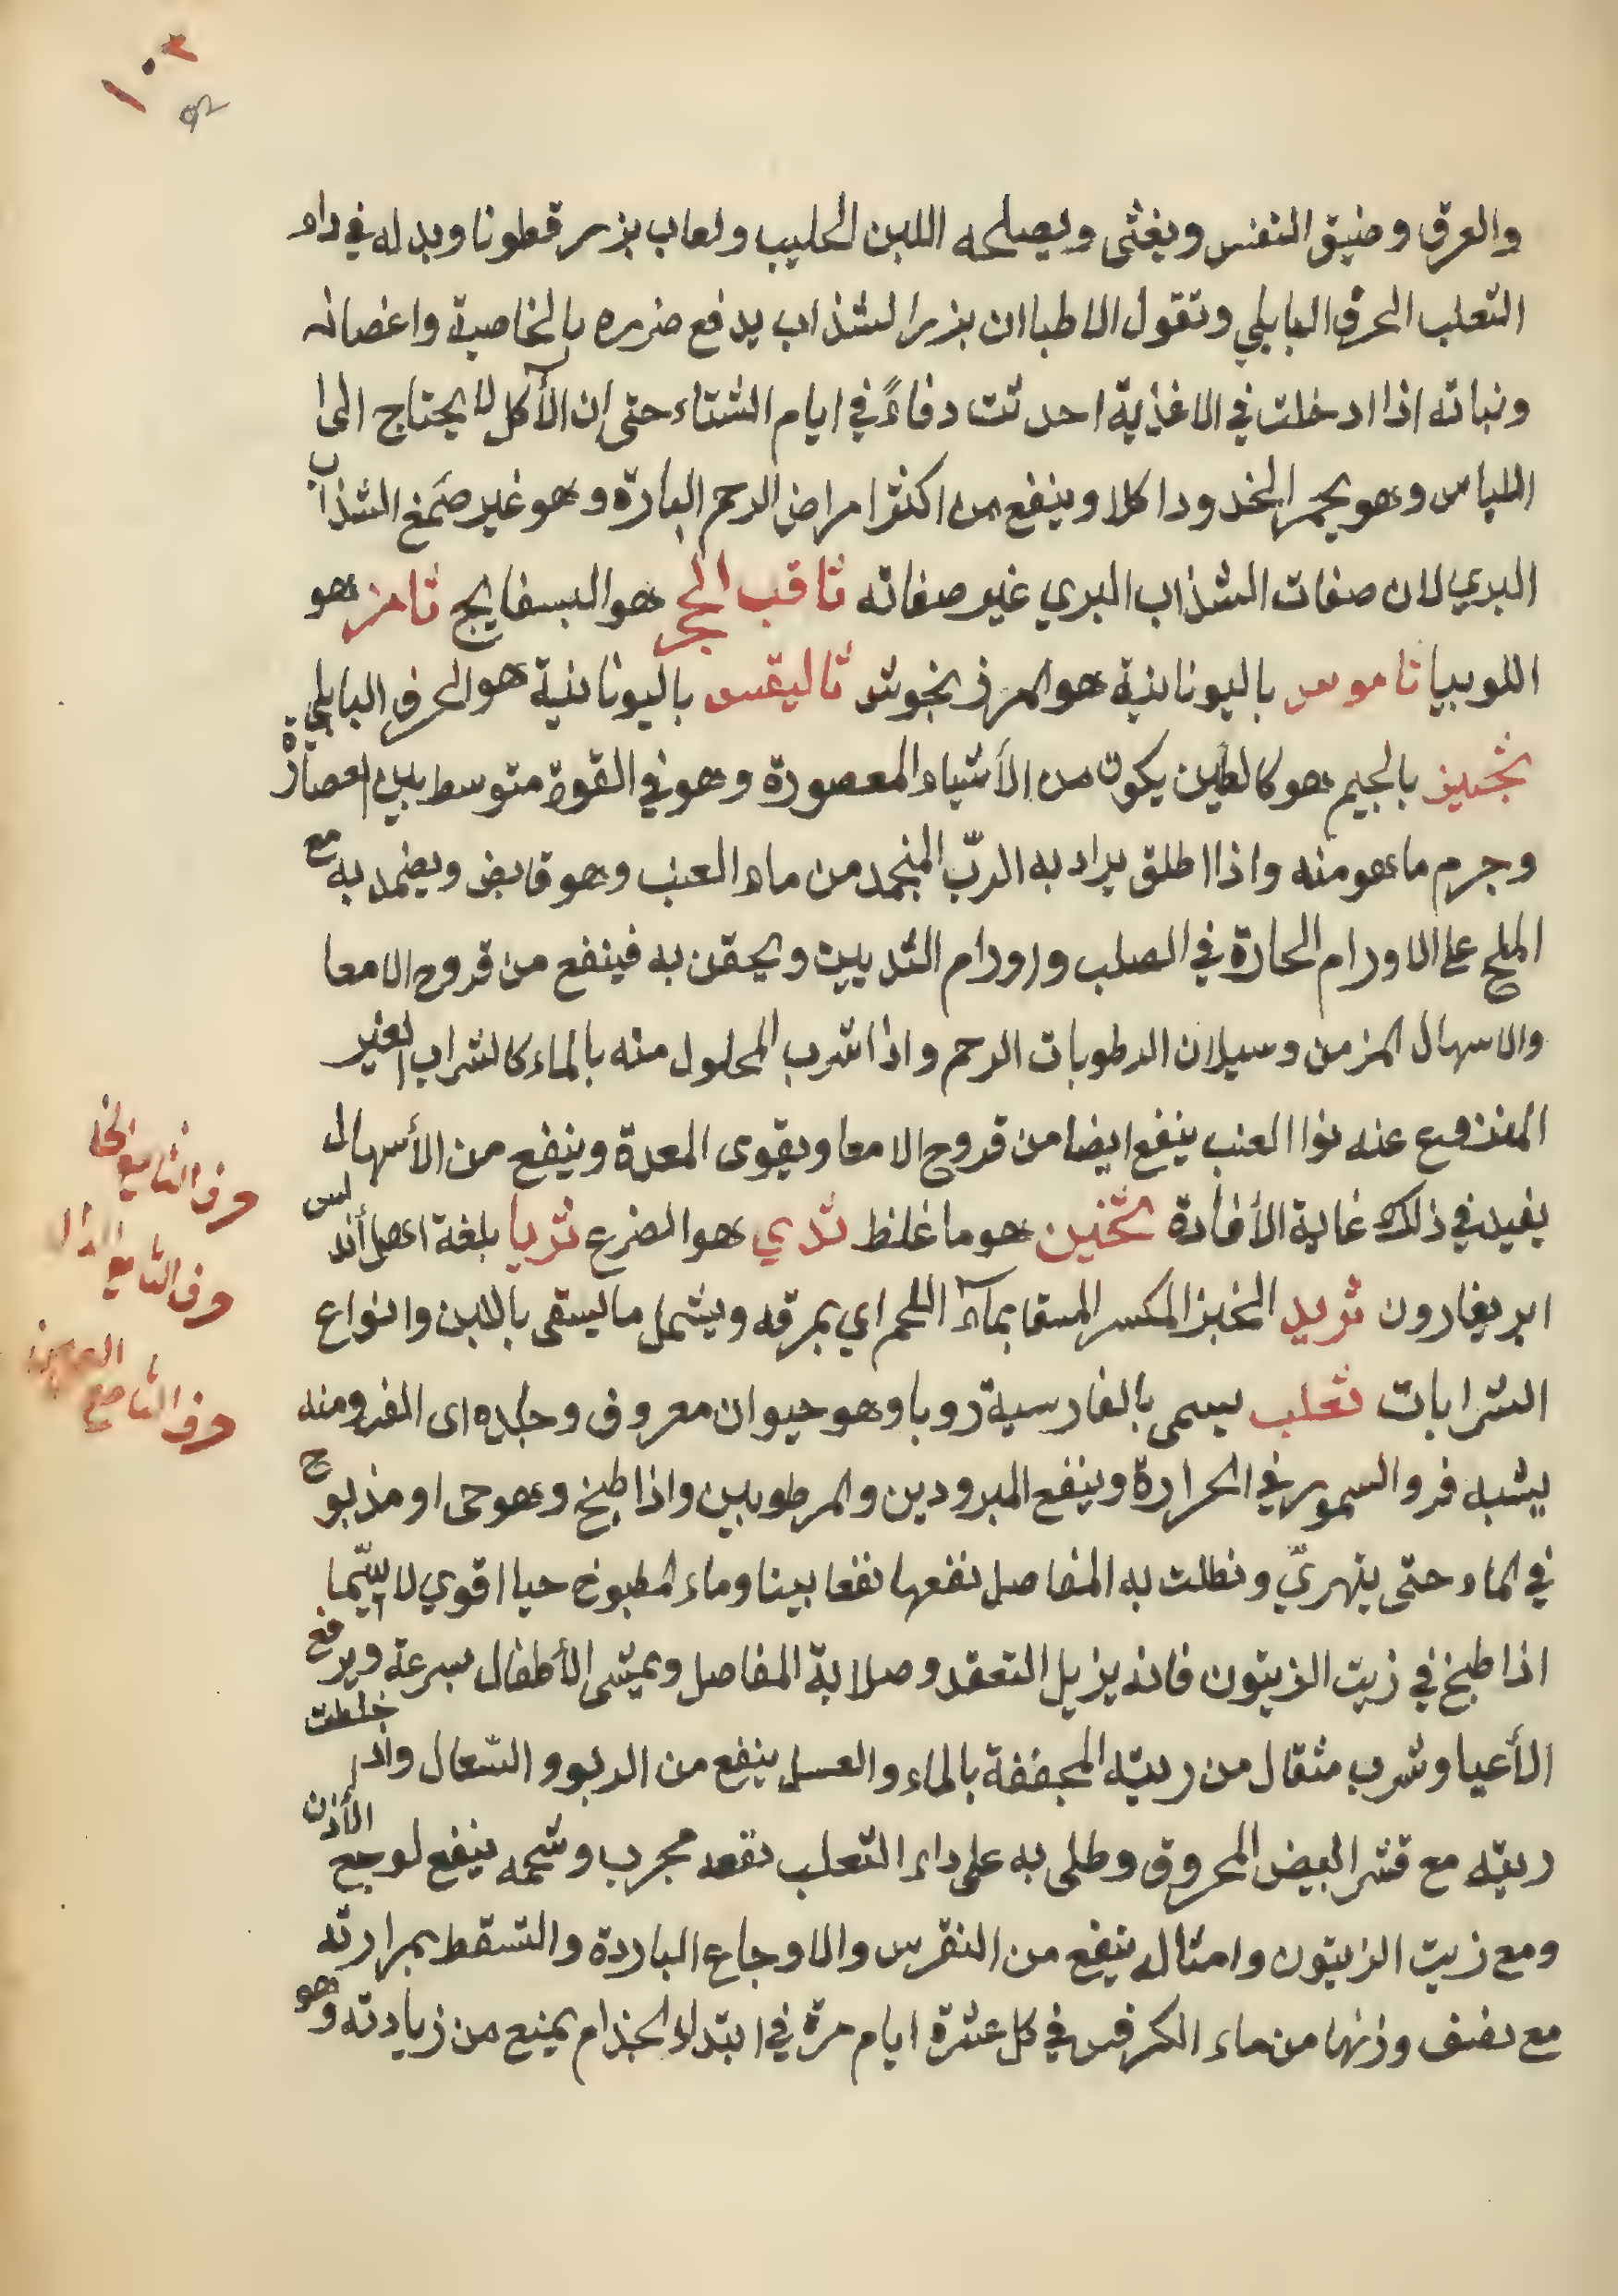 ١٠٣
والعرق وضيق النفس ويغثى ويصلحه اللبن الحليب ولعاب بزر قطونا وبدله في داء
الثعلب الحرف البابلي وتقول الاطبا ان بزر الشذاب يدفع ضرره بالخاصية واغصانه
ونباته اذا ادخلت في الاغذية احدثت دفاءً في ايام الشتاء حتى ان الأكل لا يحتاج الى
اللباس وهو يحمر الخدود اكلا وينفع من اكثر امراض الرحم الباردة وهو غير صَمغ الشذاب
البري لان صفات الشذاب البري غير صفاته ثاقب الحجر هو البسفايج ثامز هو
اللوبيا ثاموس باليونانية هو المرزنجوش ثاليقس باليونانية هو الحرف البابلي
ثجير بالجيم هو كالطين يكون من الأشياء المعصورة وهو في القوة متوسط بين العصارة
وجرم ما هو منه واذا اطلق يراد به الربّ المنجمد من ماء العنب وهو قابض ويضمد به مع
الملح على الاورام الحارة في الصلب واورام الثديين ويحقن به فينفع من قروح الامعا
والاسهال المزمن وسيلان الرطوبات الرحم واذا شرب المحلول منه بالماء كالشراب الغير
المنزوع عنه نوا العنب ينفع ايضا من قروح الامعا ويقوى المعدة وينفع من الأسهال
يفيد في ذلك غاية الأفادة ثخنين هو ما غلظ ثدي هو الضرع ثريا بلغة اهل أندلس
ابريغارون ثريد الخبز المكسر المسقا بمآء اللحم اي بمرقه ويشمل ما يسقى باللبن وانواع
الشرابات ثعلب يسمى بالفارسية روبا وهو حيوان معروف وجلده اى الفرو منه
يشبه فرو السمور في الحرارة وينفع المبرودين والمرطوبين واذا طبخ وهو حى او مذبوح
في الماء حتى يتهريّ ونطلت به المفاصل نفعها نفعا بينا وماء المطبوخ حيا اقوي لا سيّما
اذا طبخ في زيت الزيتون فانه يزيل التعقد وصلابة المفاصل ويمشى الأطفال بسرعة ويرفع
الأعيا وشرب مثقال من ريته المجففة بالماء والعسل ينفع من الربو والسّعال واذا خلطت
ريته مع قشر البيض المحروق وطلى به على داء الثعلب نفعه مجرب وشحمه ينفع لوجع الأذن
ومع زيت الزيتون وامثاله ينفع من النقرس والاوجاع الباردة والتسقط بمرارته
مع نصف وزنها من ماء الكرفس في كل عشرة ايام مرة في ابتداء الجذام يمنع من زيادته وهو
حرف الثا مع الخا
حرف الثا مع الدال
حرف الثا مع العين